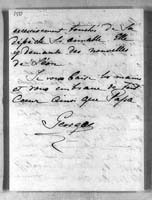 150
excessivement touchée de Ta
dépêche si aimable. Elle
demande des nouvelles
de
Je vous baise les mains
et vous embrasse de tout
Coeur ainsi que Papa
Georges